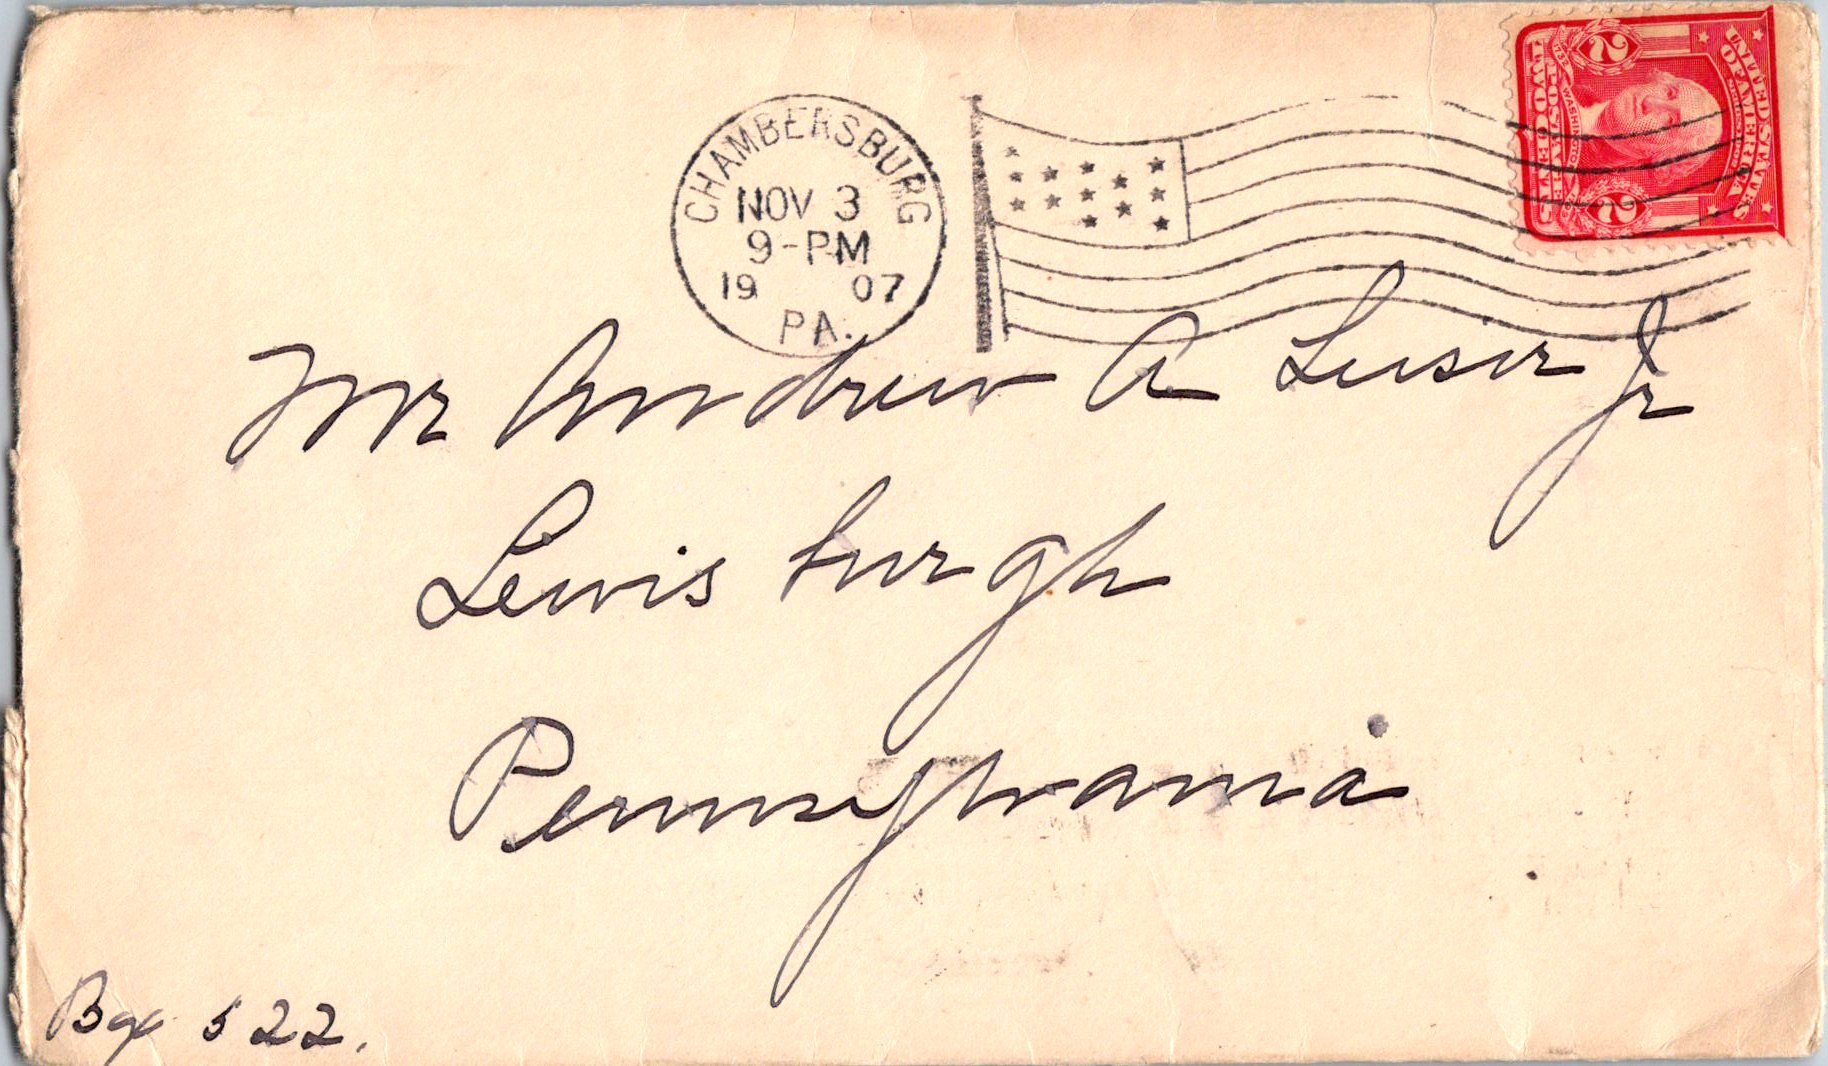 CHAMBERSBURG
NOV 3
9-PM
19 07
PA.
UNITED STATES
OF AMERICA
2 2
1732 WASHINGTON
TWO CENTS
Mr Andrew A Leiser Jr
Lewisburgh
Pennsylvania
Box 522.